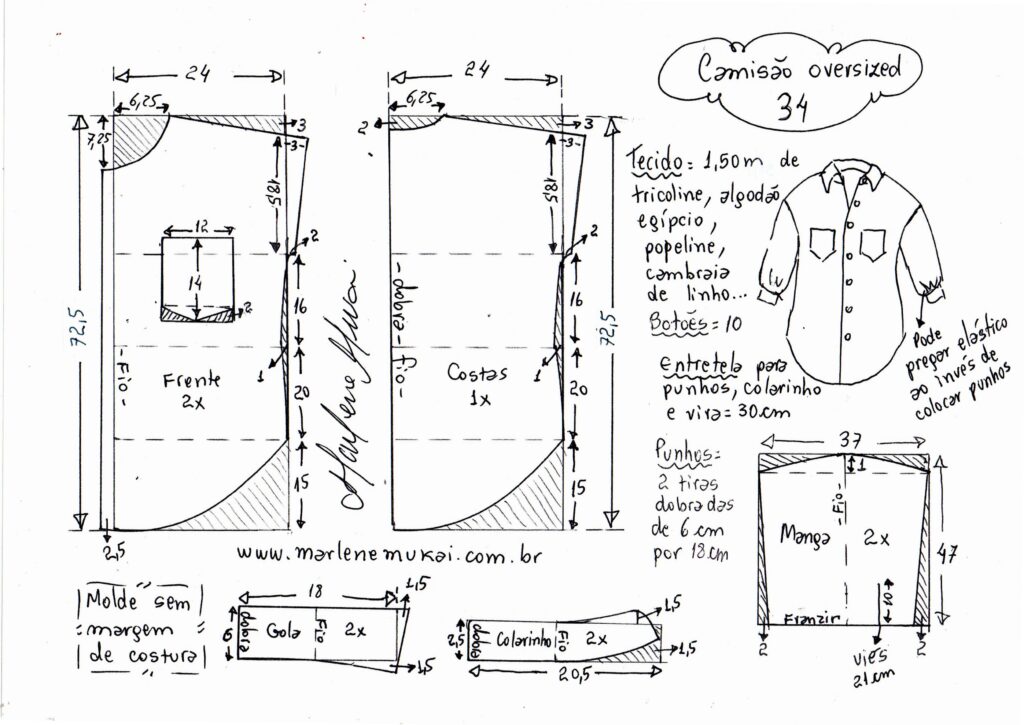 Camisão oversized
34
24
6,25
7,25
3
-3-
18,5
2
12
14
2
72,5
16
-Fio-
Frente
2x
1
20
15
2,5
24
6,25
2
3
-3-
18,5
2
-dobra-fio-
16
Costas
1x
1
20
15
72,5
Marlene Mukai
www.marlenemukai.com.br
Tecido= 1,50m de
tricoline, algodão
egípcio,
popeline,
cambraia
de linho...
Botões= 10
Entretela para
punhos, colarinho
e vira= 30cm
Pode
pregar elástico
ao invés de
colocar punhos
Punhos=
2 tiras
dobradas
de 6cm
por 18cm
37
1
-Fio-
Manga 2x
47
10
Franzir
2
2
viés
21cm
Molde sem
margem
de costura
18
1,5
6
dobra
Gola
Fio
2x
1,5
2,5
dobra
Colarinho
Fio
2x
1,5
1,5
20,5